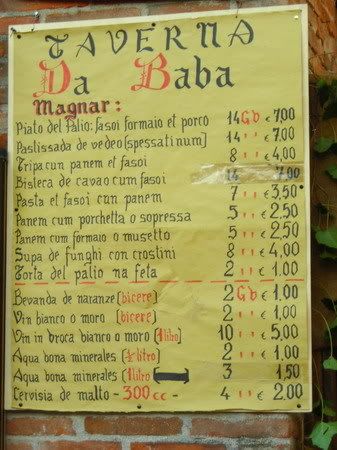 TAVERNA
Da Baba
Magnar:
Piato del Palio: fasoi formaio et porco 14 Gb € 7,00
Pastissada de vedeo [spessatinum] 14 '' '' € 7,00
Tripa cun panem et fasoi 8 '' '' € 4,00
Bisteca de cavao cum fasoi 14 7,00
Pasta et fasoi cun panem 7 '' '' € 3,50
Panem cum porchetta o sopressa 5 '' '' € 2,50
Panem cum formaio o musetto 5 '' '' € 2,50
Supa de funghi con crostini 8 '' '' € 4,00
Torta del palio na feta 2 '' '' € 1,00
Bevanda de naranze [bicere] 2 Gb € 1,00
Vin bianco o moro [bicere] 2 '' '' € 1,00
Vin in broca bianco o moro [1 litro] 10 '' '' € 5,00
Aqua bona minerales [½ litro] 2 '' '' € 1,00
Aqua bona minerales [1 litro] 3 1,50
Cervisia de malto - 300 cc - 4 '' '' € 2,00